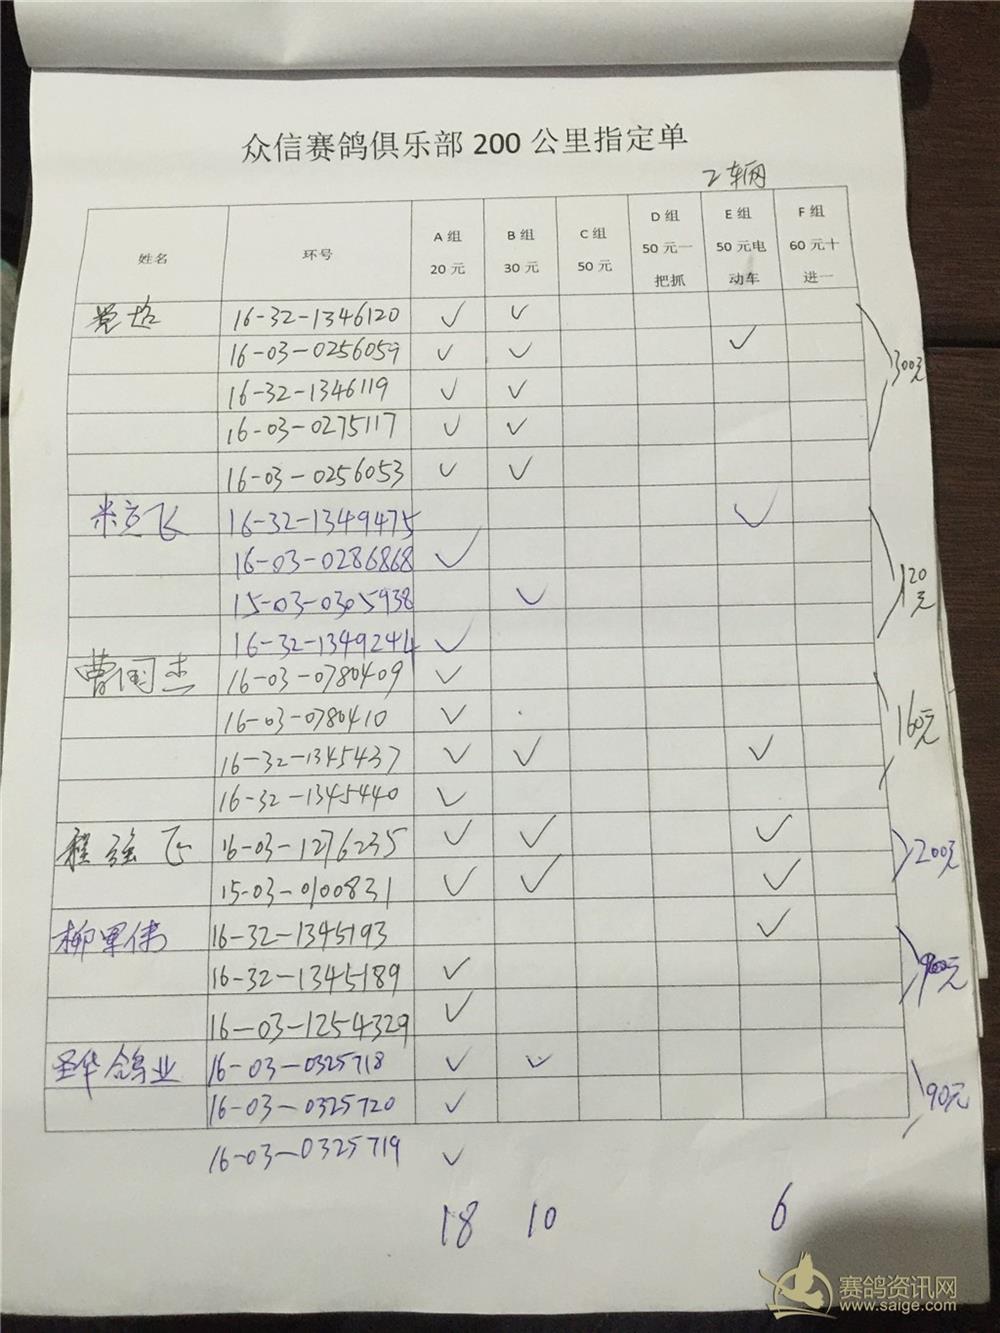 众信赛鸽俱乐部 200 公里指定单
2辆
姓名 环号 A 组 20 元 B 组 30 元 C 组 50 元 D 组 50 元一把抓 E 组 50 元电动车 F 组 60 元十进一
16-32-1346120 ✓ ✓
16-03-0256059 ✓ ✓ ✓
16-32-1346119 ✓ ✓
300元
16-03-0275117 ✓ ✓
16-03-0256053 ✓ ✓
米立飞 16-32-1349475 ✓
16-03-0286868 ✓
15-03-0305938 ✓
120元
16-32-1349244 ✓
曹国杰 16-03-0780409 ✓
16-03-0780410 ✓
160元
16-32-1345437 ✓ ✓ ✓
16-32-1345440 ✓
程强飞 16-03-1276235 ✓ ✓ ✓
200元
15-03-0100831 ✓ ✓ ✓
柳军伟 16-32-1345193 ✓
16-32-1345189 ✓
16-03-1254329 ✓
圣华鸽业 16-03-0325718 ✓ ✓
16-03-0325720 ✓
90元
16-03-0325719 ✓
18 10 6
赛鸽资讯网
www.saige.com